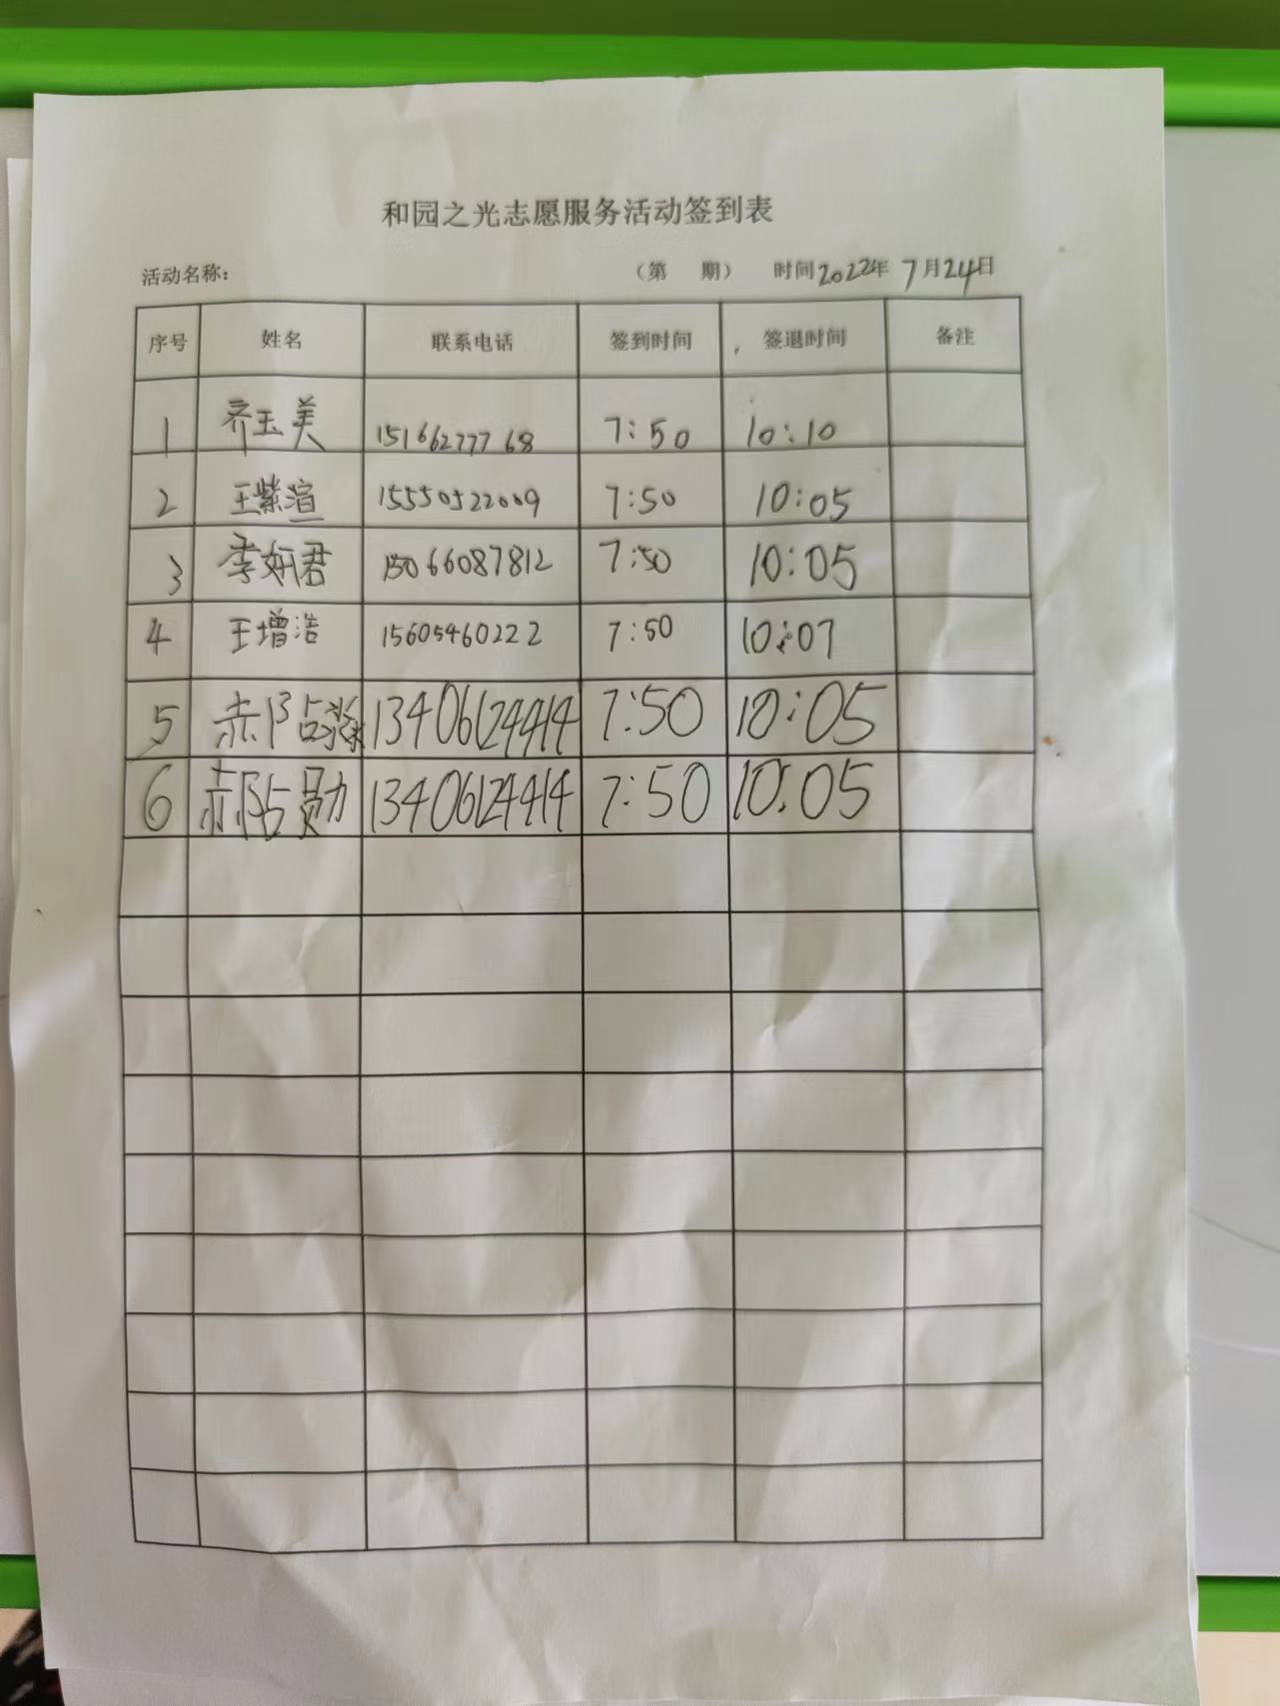 和园之光志愿服务活动签到表
活动名称： （第 期） 时间2022年 7月24日
序号 姓名 联系电话 签到时间 签退时间 备注
1 齐玉美 15166277768 7:50 10:10
2 王紫渲 15550522009 7:50 10:05
3 季妍君 15066087812 7:50 10:05
4 王增浩 15605460222 7:50 10:07
5 郝占 13406124414 7:50 10:05
6 郝占勋 13406124414 7:50 10:05